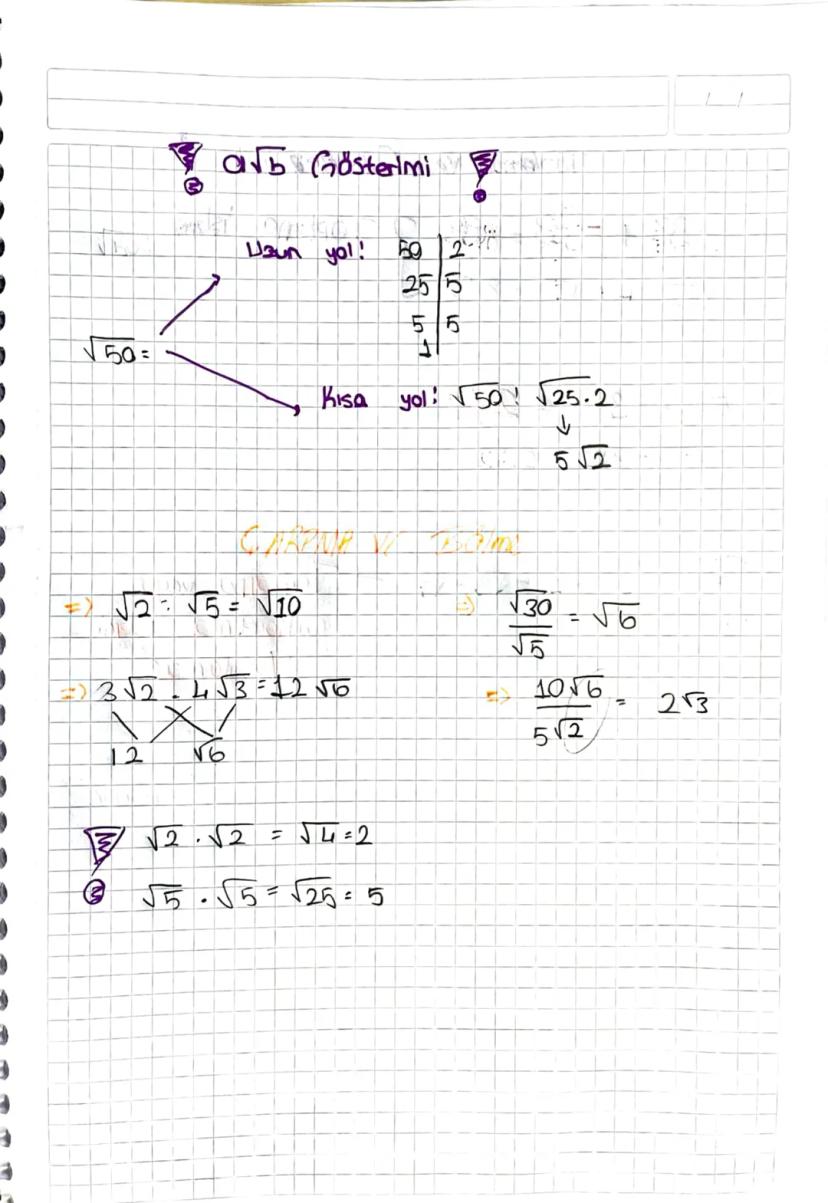 a√b Gösterimi
Uzun yol! 50 | 2
25 | 5
5 | 5
1
√50 =
Kısa yol! √50 ! √25.2
↓
5√2
ÇARPMA VE Bölme
⇒) √2 : √5 = √10
⇒) √30/√5 = √6
⇒) 3√2 . 4√3 = 12√6
12 √6
⇒) 10√6/5√2 = 2√3
√2 . √2 = √4 = 2
√5 . √5 = √25 = 5